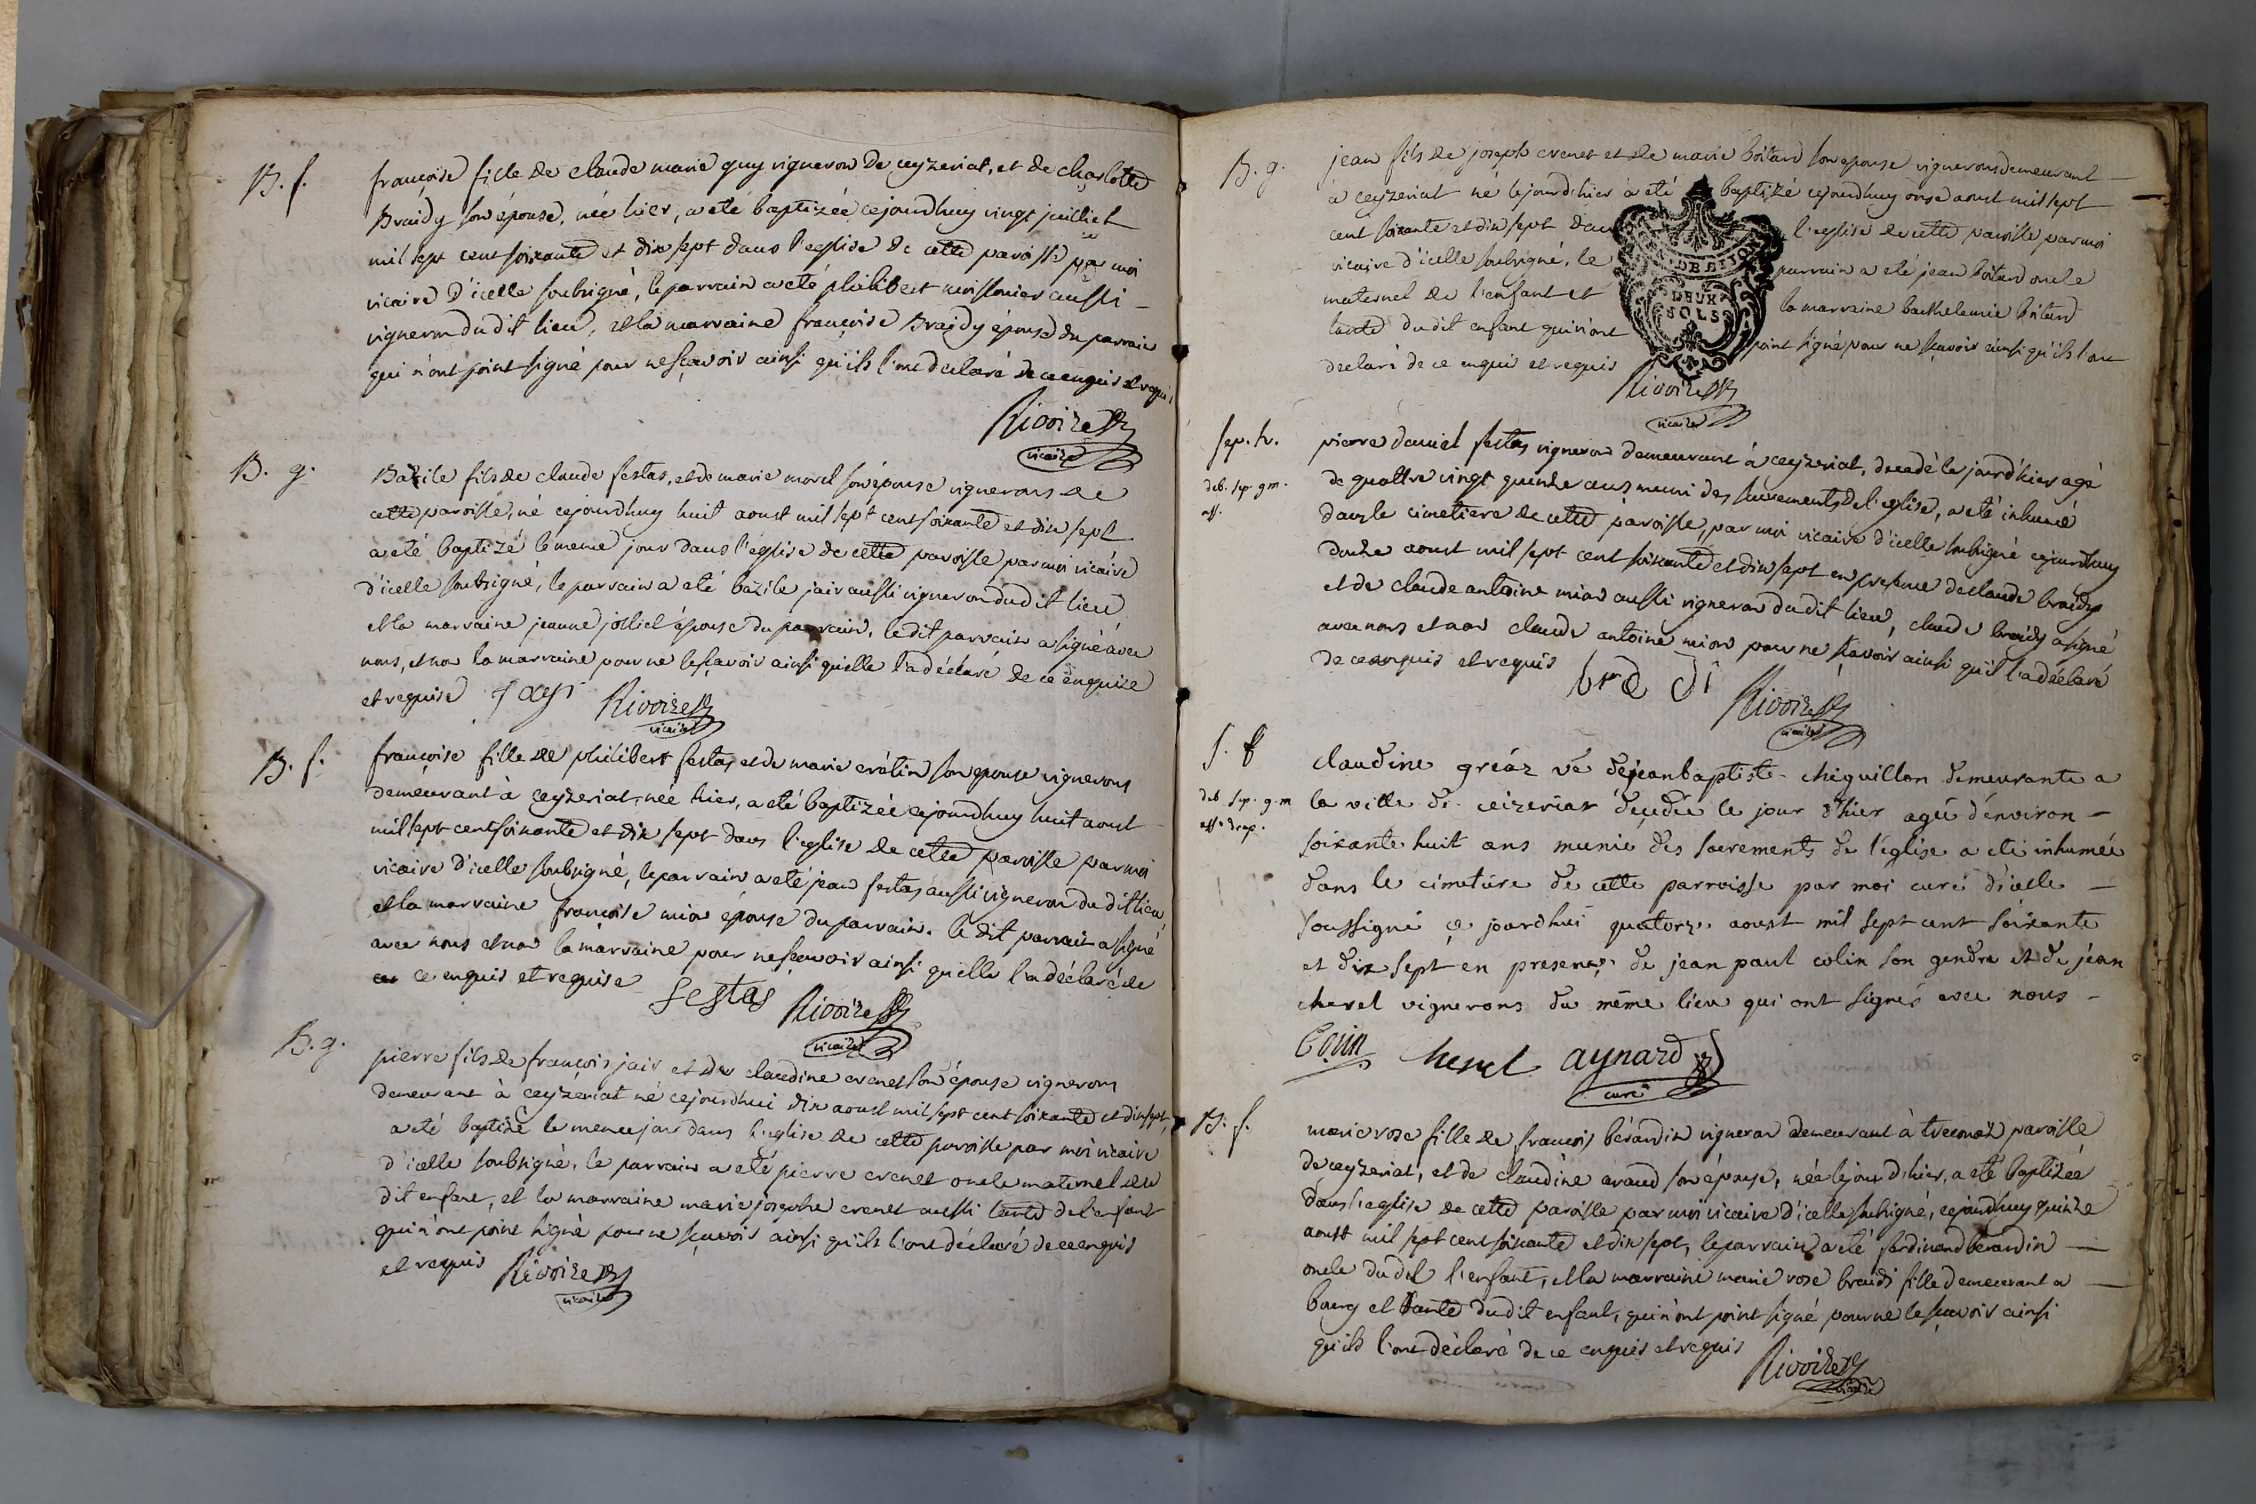 B. f.
françoise fille de claude marie guy vigneron de ceyzeriat, et de charlotte
Braidy son épouse, née hier, a eté baptizée cejourdhuy vingt juilliet
mil sept cent soixante et dix sept dans l'eglise de cette paroisse par moi
vicaire d'icelle soubsigné, le parrain a eté philibert aussi
vigneron du dit lieu, et la marraine françoise Braidy épouse du parrain
qui n'ont point signé pour ne sçavoir ainsi qu'ils l'ont declaré de ce enquis et requis
Rivoire
vicaire
B. g.
Bazile fils de claude festas, et de marie morel son épouse vignerons de
cette paroisse, né cejourdhuy huit aoust mil sept cent soixante et dix sept
a eté baptizé le meme jour dans l'eglise de cette paroisse par moi vicaire
d'icelle soubsigné, le parrain a eté bazile jair aussi vigneron dudit lieu
et la marraine jeanne épouse du parrain, le dit parrain a signé avec
nous, et non la marraine pour ne le sçavoir ainsi qu'elle l'a déclaré de ce enquize
et requise Rivoire
vicaire
B. f.
françoise fille de philibert festas et de marie crétin son epouse vignerons
demeurant à ceyzeriat, née hier, a eté baptizée cejourdhuy huit aoust
mil sept cent soixante et dix sept dans l'eglise de cette paroisse par moi
vicaire d'icelle soubsigné, le parrain a eté jean festas aussi vigneron du dit lieu
et la marraine françoise mion épouse du parrain. le dit parrain a signé
avec nous et non la marraine pour ne sçavoir ainsi qu'elle l'a déclaré de
ce enquis et requise festas Rivoire
vicaire
B. g.
pierre fils de françois jair et de claudine evenet son épouse vignerons
demeurant à ceyzériat né cejourdhui dix aoust mil sept cent soixante et dix sept,
a eté baptizé le meme jour dans l'eglise de cette paroisse par moi vicaire
d'icelle soubsigné, le parrain a eté pierre evenet oncle maternel du
dit enfant, et la marraine marie josephe evenet aussi tante de l'enfant
qui n'ont point signé pour ne sçavoir ainsi qu'ils l'ont déclaré de ce enquis
et requis Rivoire
vicaire
B. g.
jean fils de joseph evenet et de marie boitard son epouse vignerons demeurant
a ceyzeriat né lejourd'hier a eté baptizé cejourdhuy onze aoust mil sept
cent soixante et dix sept dans l'eglise de cette paroisse par moi
vicaire d'icelle soubsigné, le parrain a eté jean boitard oncle
maternel de l'enfant et la marraine barthelemie boitard
tante dudit enfant qui n'ont point signé pour ne sçavoir ainsi qu'ils l'ont
declaré de ce enquis et requis
DEUX
SOLS
Rivoire
vicaire
sep. h.
deb. sep. g m.
ass.
pierre daniel festas vigneron demeurant à ceyzeriat, decedé le jour d'hier agé
de quattre vingt quinze ans muni des sacrements de l'eglise, a eté inhumé
dans le cimetiere de cette paroisse, par moi vicaire d'icelle soubsigné cejourdhuy
douze aoust mil sept cent soixante et dix sept en presence de claude braidy
et de claude antoine mion aussi vigneron du dit lieu, claude braidy a signé
avec nous et non claude antoine mion pour ne sçavoir ainsi qu'il l'a déclaré
de ce enquis et requis bradi
Rivoire
vicaire
S. f
deb. sep. g. m
ass. drap.
claudine gréaz vé de jean baptiste chiguillon demeurante a
la ville de ceizeriat decedée le jour d'hier agée d'environ
soixante huit ans munie des sacrements de l'eglise a eté inhumée
dans le cimetiére de cette parroisse par moi curé d'icelle
soussigné ce jourdhui quatorze aoust mil sept cent soixante
et dix sept en presence de jean paul colin son gendre et de jean
chevel vignerons du même lieu qui ont signés avec nous
Colin chevel aynard
curé
B. f.
marie rose fille de françois bérardin vigneron demeurant à treconnas paroisse
de ceyzeriat, et de claudine avaud son épouse, née le jour d'hier, a eté baptizée
dans l'eglise de cette paroisse par moi vicaire d'icelle soubsigné, cejourdhuy quinze
aoust mil sept cent soixante et dix sept, le parrain a eté ferdinand berardin
oncle dudit l'enfant, et la marraine marie rose braidi fille demeurant a
bourg et tante dudit enfant, qui n'ont point signé pour ne le sçavoir ainsi
qu'ils l'ont déclaré de ce enquis et requis
Rivoire
vicaire